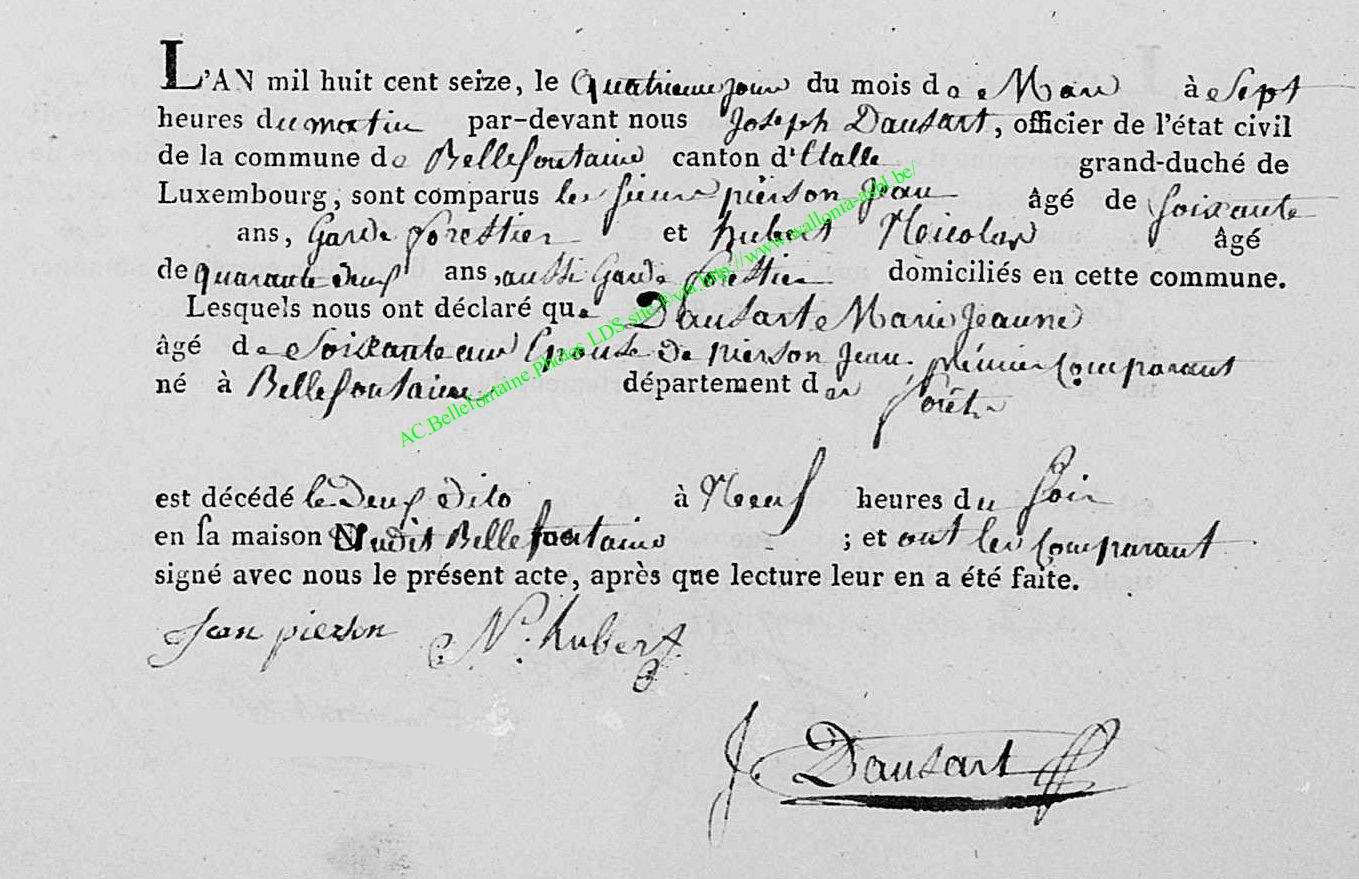 L'AN mil huit cent seize, le quatrieme jour du mois de Mars à Sept
heures du matin par-devant nous Joseph Dausart, officier de l'état civil
de la commune de Bellefontaine canton d'Etalle grand-duché de
Luxembourg, sont comparus les sieurs pierson Jean âgé de soixante
ans, Garde forestier et hubert Nicolas âgé
de quarante deux ans, aussi Garde forestier domiciliés en cette commune.
Lesquels nous ont déclaré que Dausart Marie Jeanne
âgé de soixante ans Epouse de pierson Jean. prémier Comparant
né à Bellefontaine département des forêts
est décédé le deux dito à Neuf heures du soir
en sa maison audit Bellefontaine ; et ont les Comparant
signé avec nous le présent acte, après que lecture leur en a été faite.
Jean pierson N. hubert
J. Dausart
AC.Bellefontaine photos LDS site #via http://www.wallonia-asbl.be/